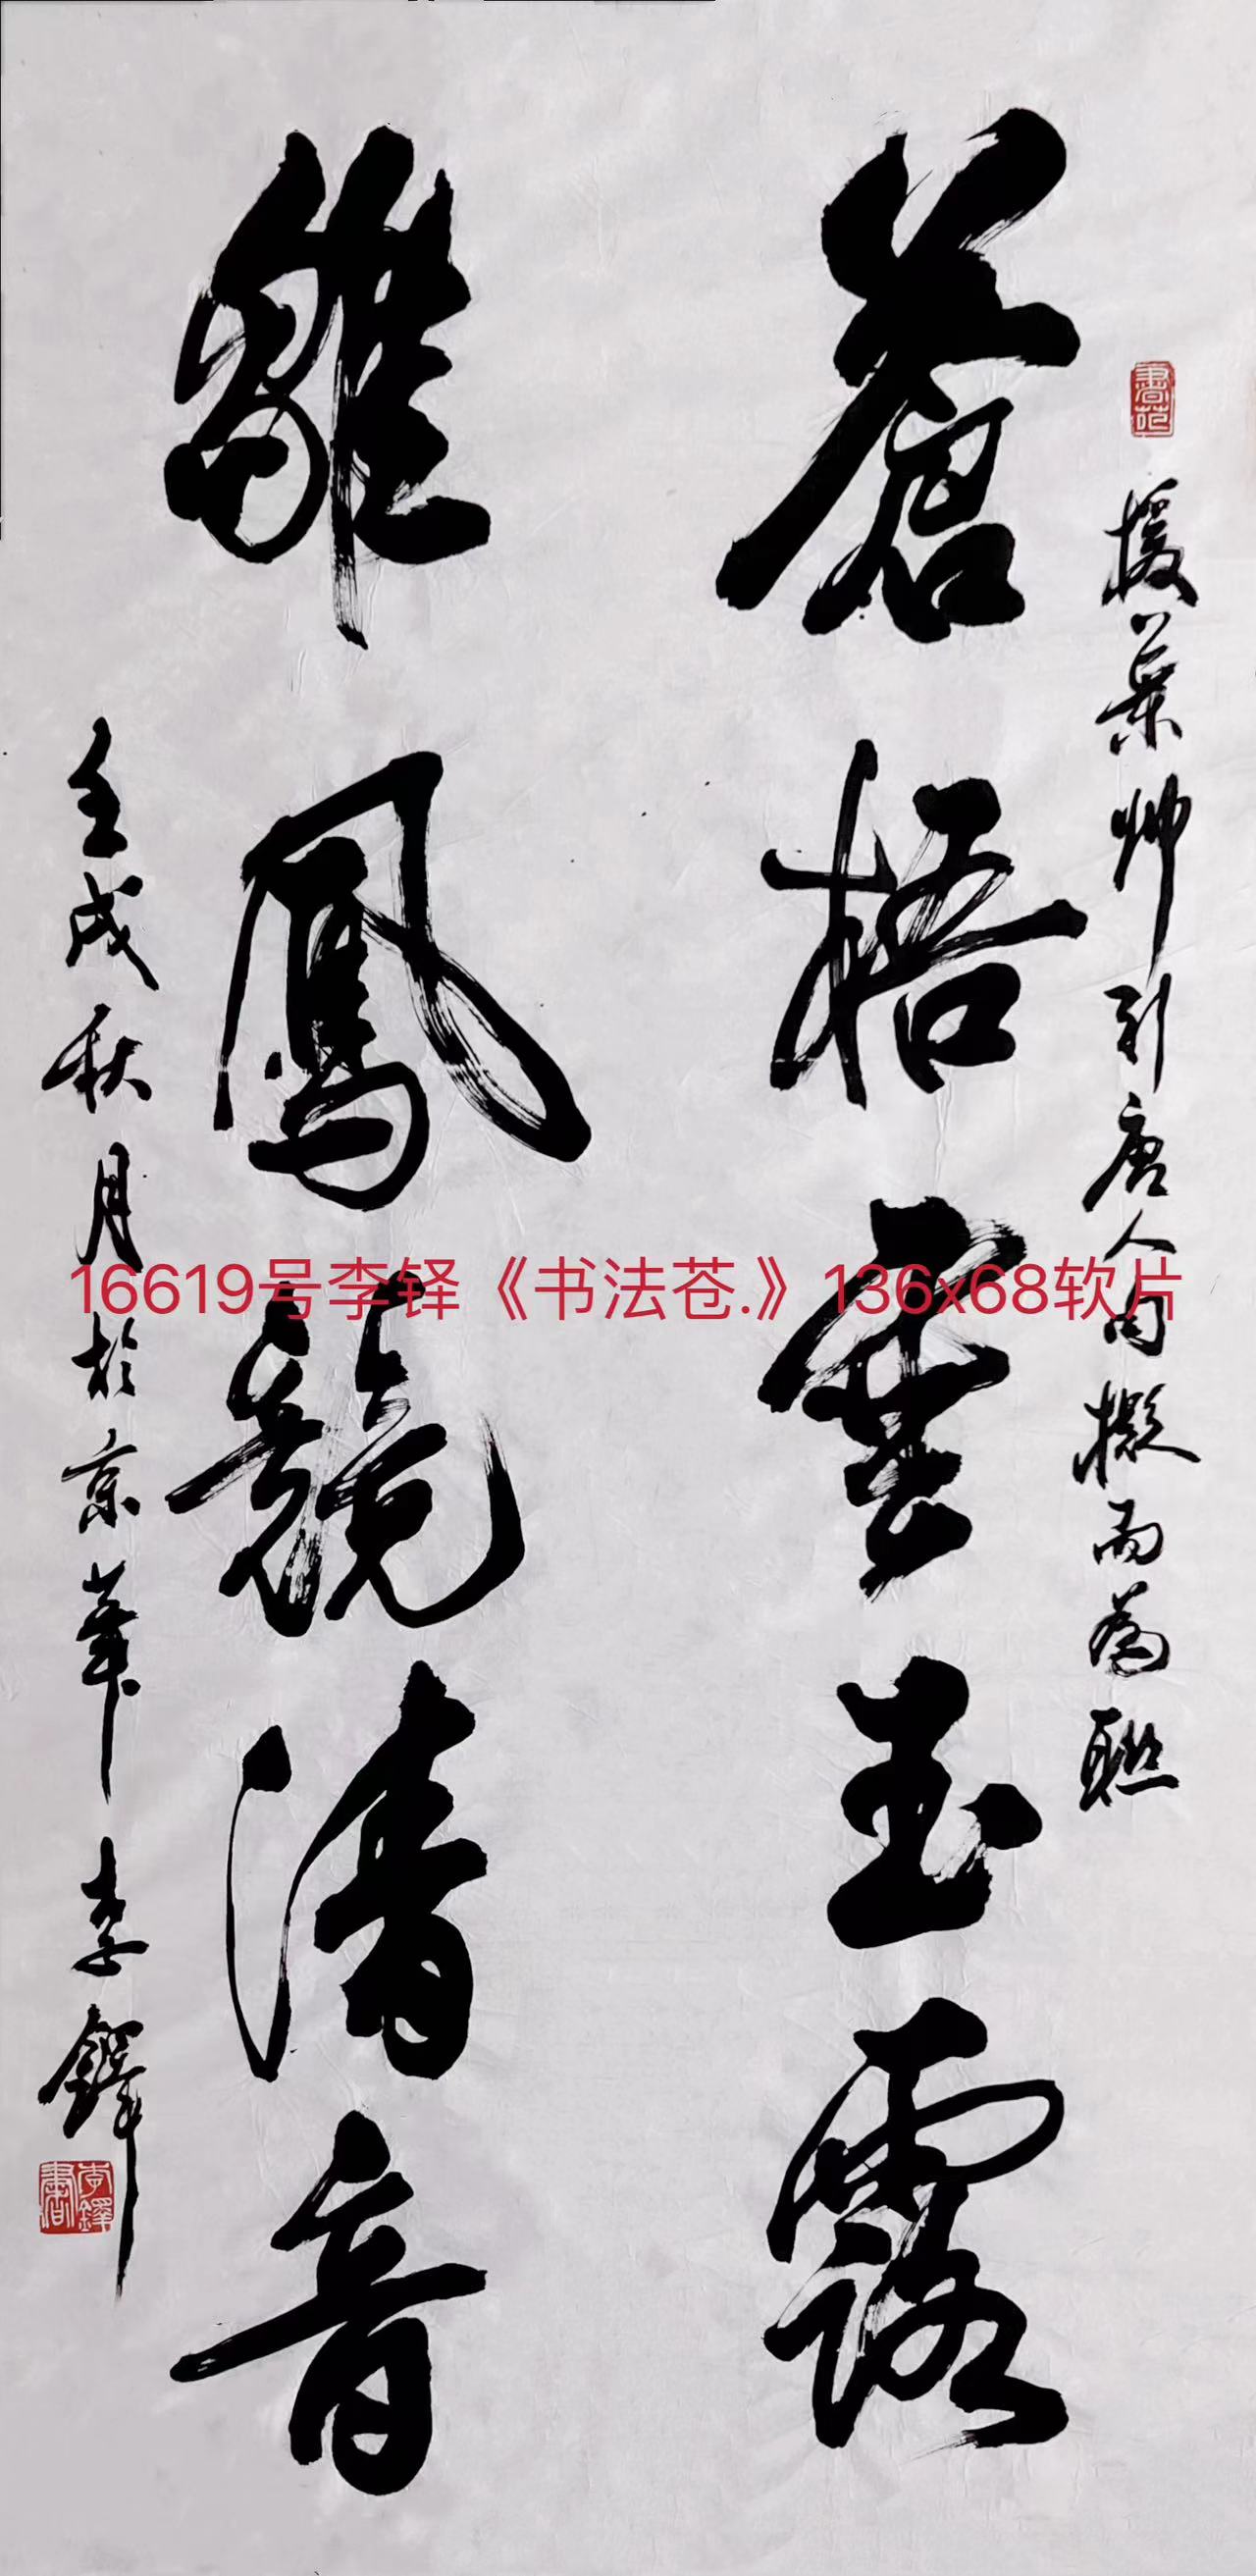 書苑
援葉帅引唐人句擬而為聯
蒼梧垂玉露
雛鳳競清音
壬戌秋月於京華李鐸
李鐸書
16619号李铎《书法苍.》136x68软片